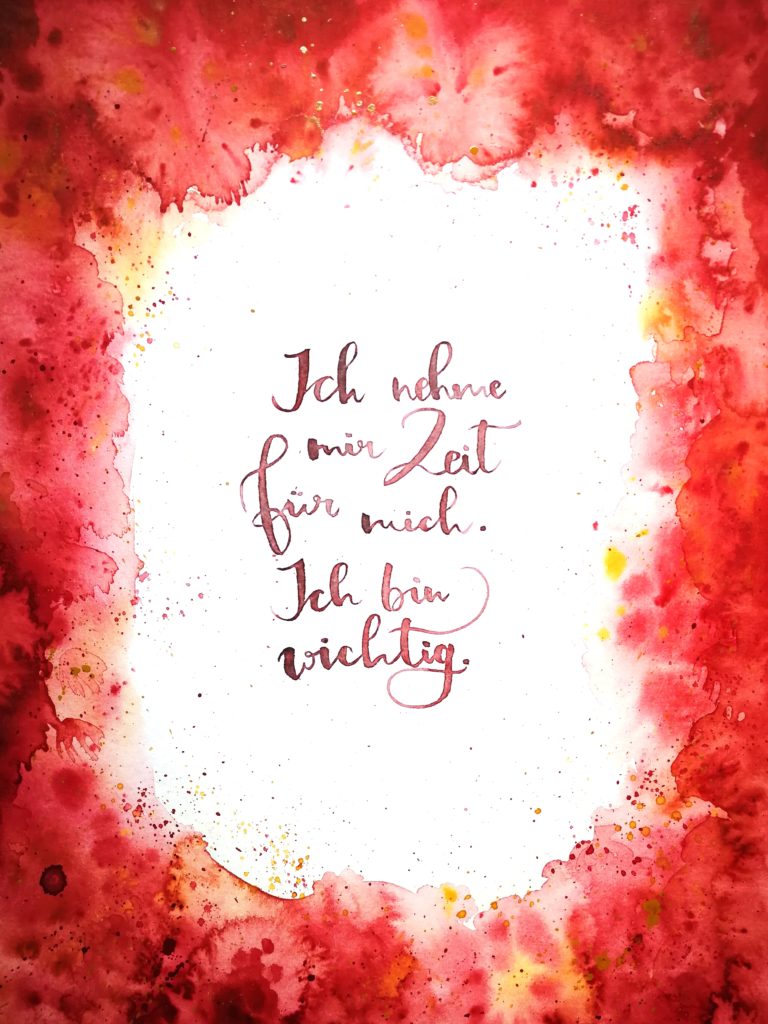 Ich nehme
mir Zeit
für mich.
Ich bin
wichtig.